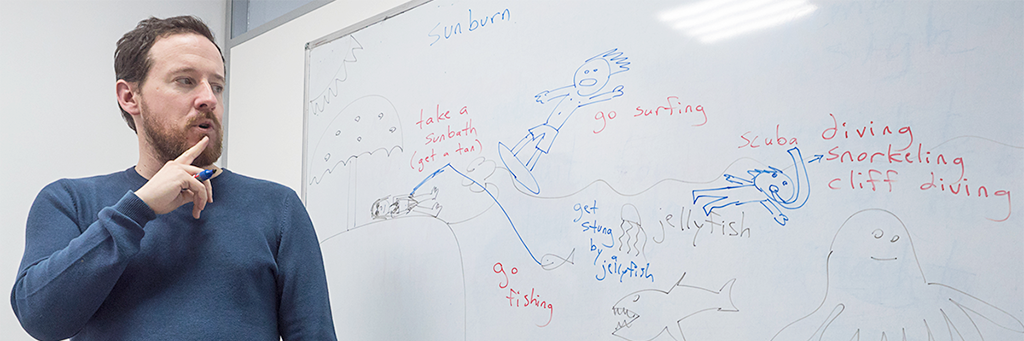 sunburn
take a
sunbath
(get a tan)
go surfing
scuba diving
snorkeling
cliff diving
get
stung
by
jellyfish
jellyfish
go
fishing